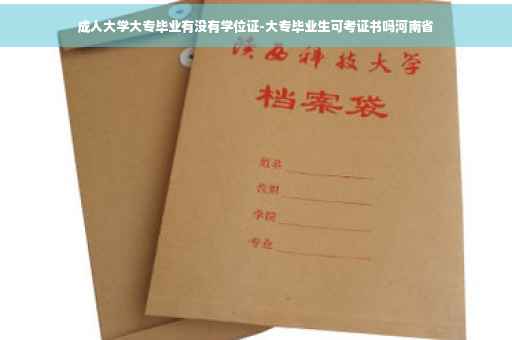 成人大学大专毕业有没有学位证-大专毕业生可考证书吗河南省
陕西科技大学
档案袋
姓名
学院
专业